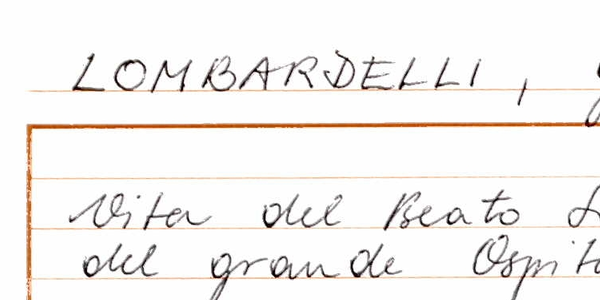 LOMBARDELLI,
Vita del Beato
del grande